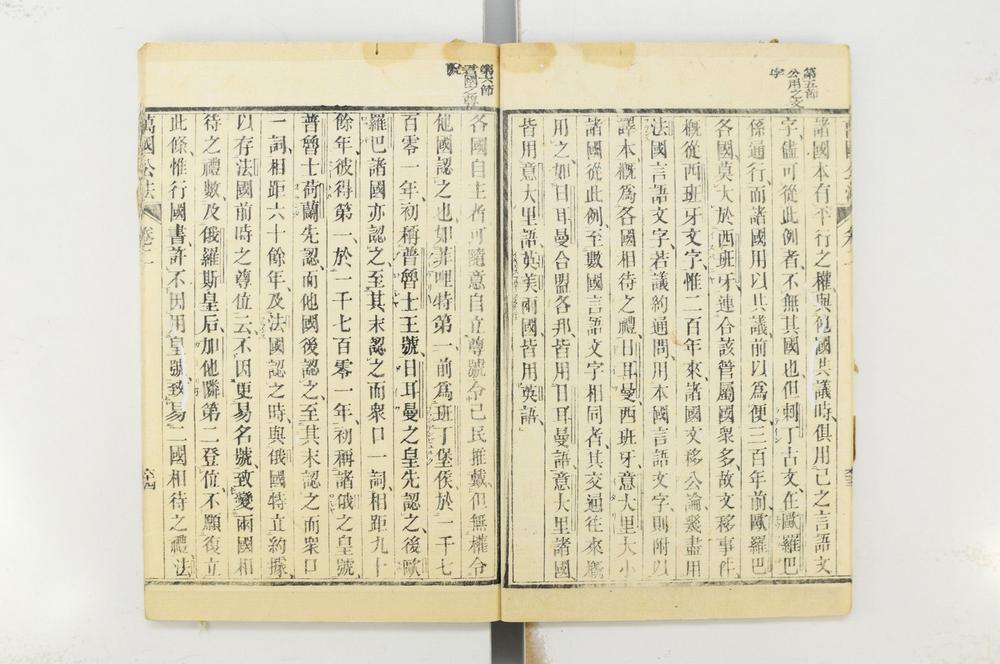 第五節
公用之文
字
諸國本有平行之權與他國共議時俱用己之言語文
字儘可從此例者不無其國也但剌丁古文在歐羅巴
係通行而諸國用以共議前以為便三百年前歐羅巴
各國莫大於西班牙連合該管屬國衆多故文移事件
槪從西班牙文字惟二百年來諸國文移公論幾盡用
法國言語文字若議約通問用本國言語文字則附以
譯本槪爲各國相待之禮日耳曼西班牙意大里大小
諸國從此例至數國言語文字相同者其交通往來厩
用之如日耳曼合盟各邦皆用日耳曼語意大里諸國
皆用意大里語英美兩國皆用英語
第六節
君國之尊
號
各國自主者可隨意自立尊號令己民推戴但無權令
他國認之也如菲哩特第一前為班丁堡侯於一千七
百零一年初稱普魯士王號日耳曼之皇先認之後歐
羅巴諸國亦認之至其末認之而衆口一詞相距九十
餘年彼得第一於一千七百零一年初稱諸俄之皇號
普魯士荷蘭先認而他國後認之至其末認之而衆口
一詞相距六十餘年及法國認之時與俄國特立約據
以存法國前時之尊位云不因更易名號致變兩國相
待之禮數及俄羅斯皇后加他隣第二登位不願復立
此條惟行國書許不因用皇號致易二國相待之禮法
萬國公法
卷二
六十四